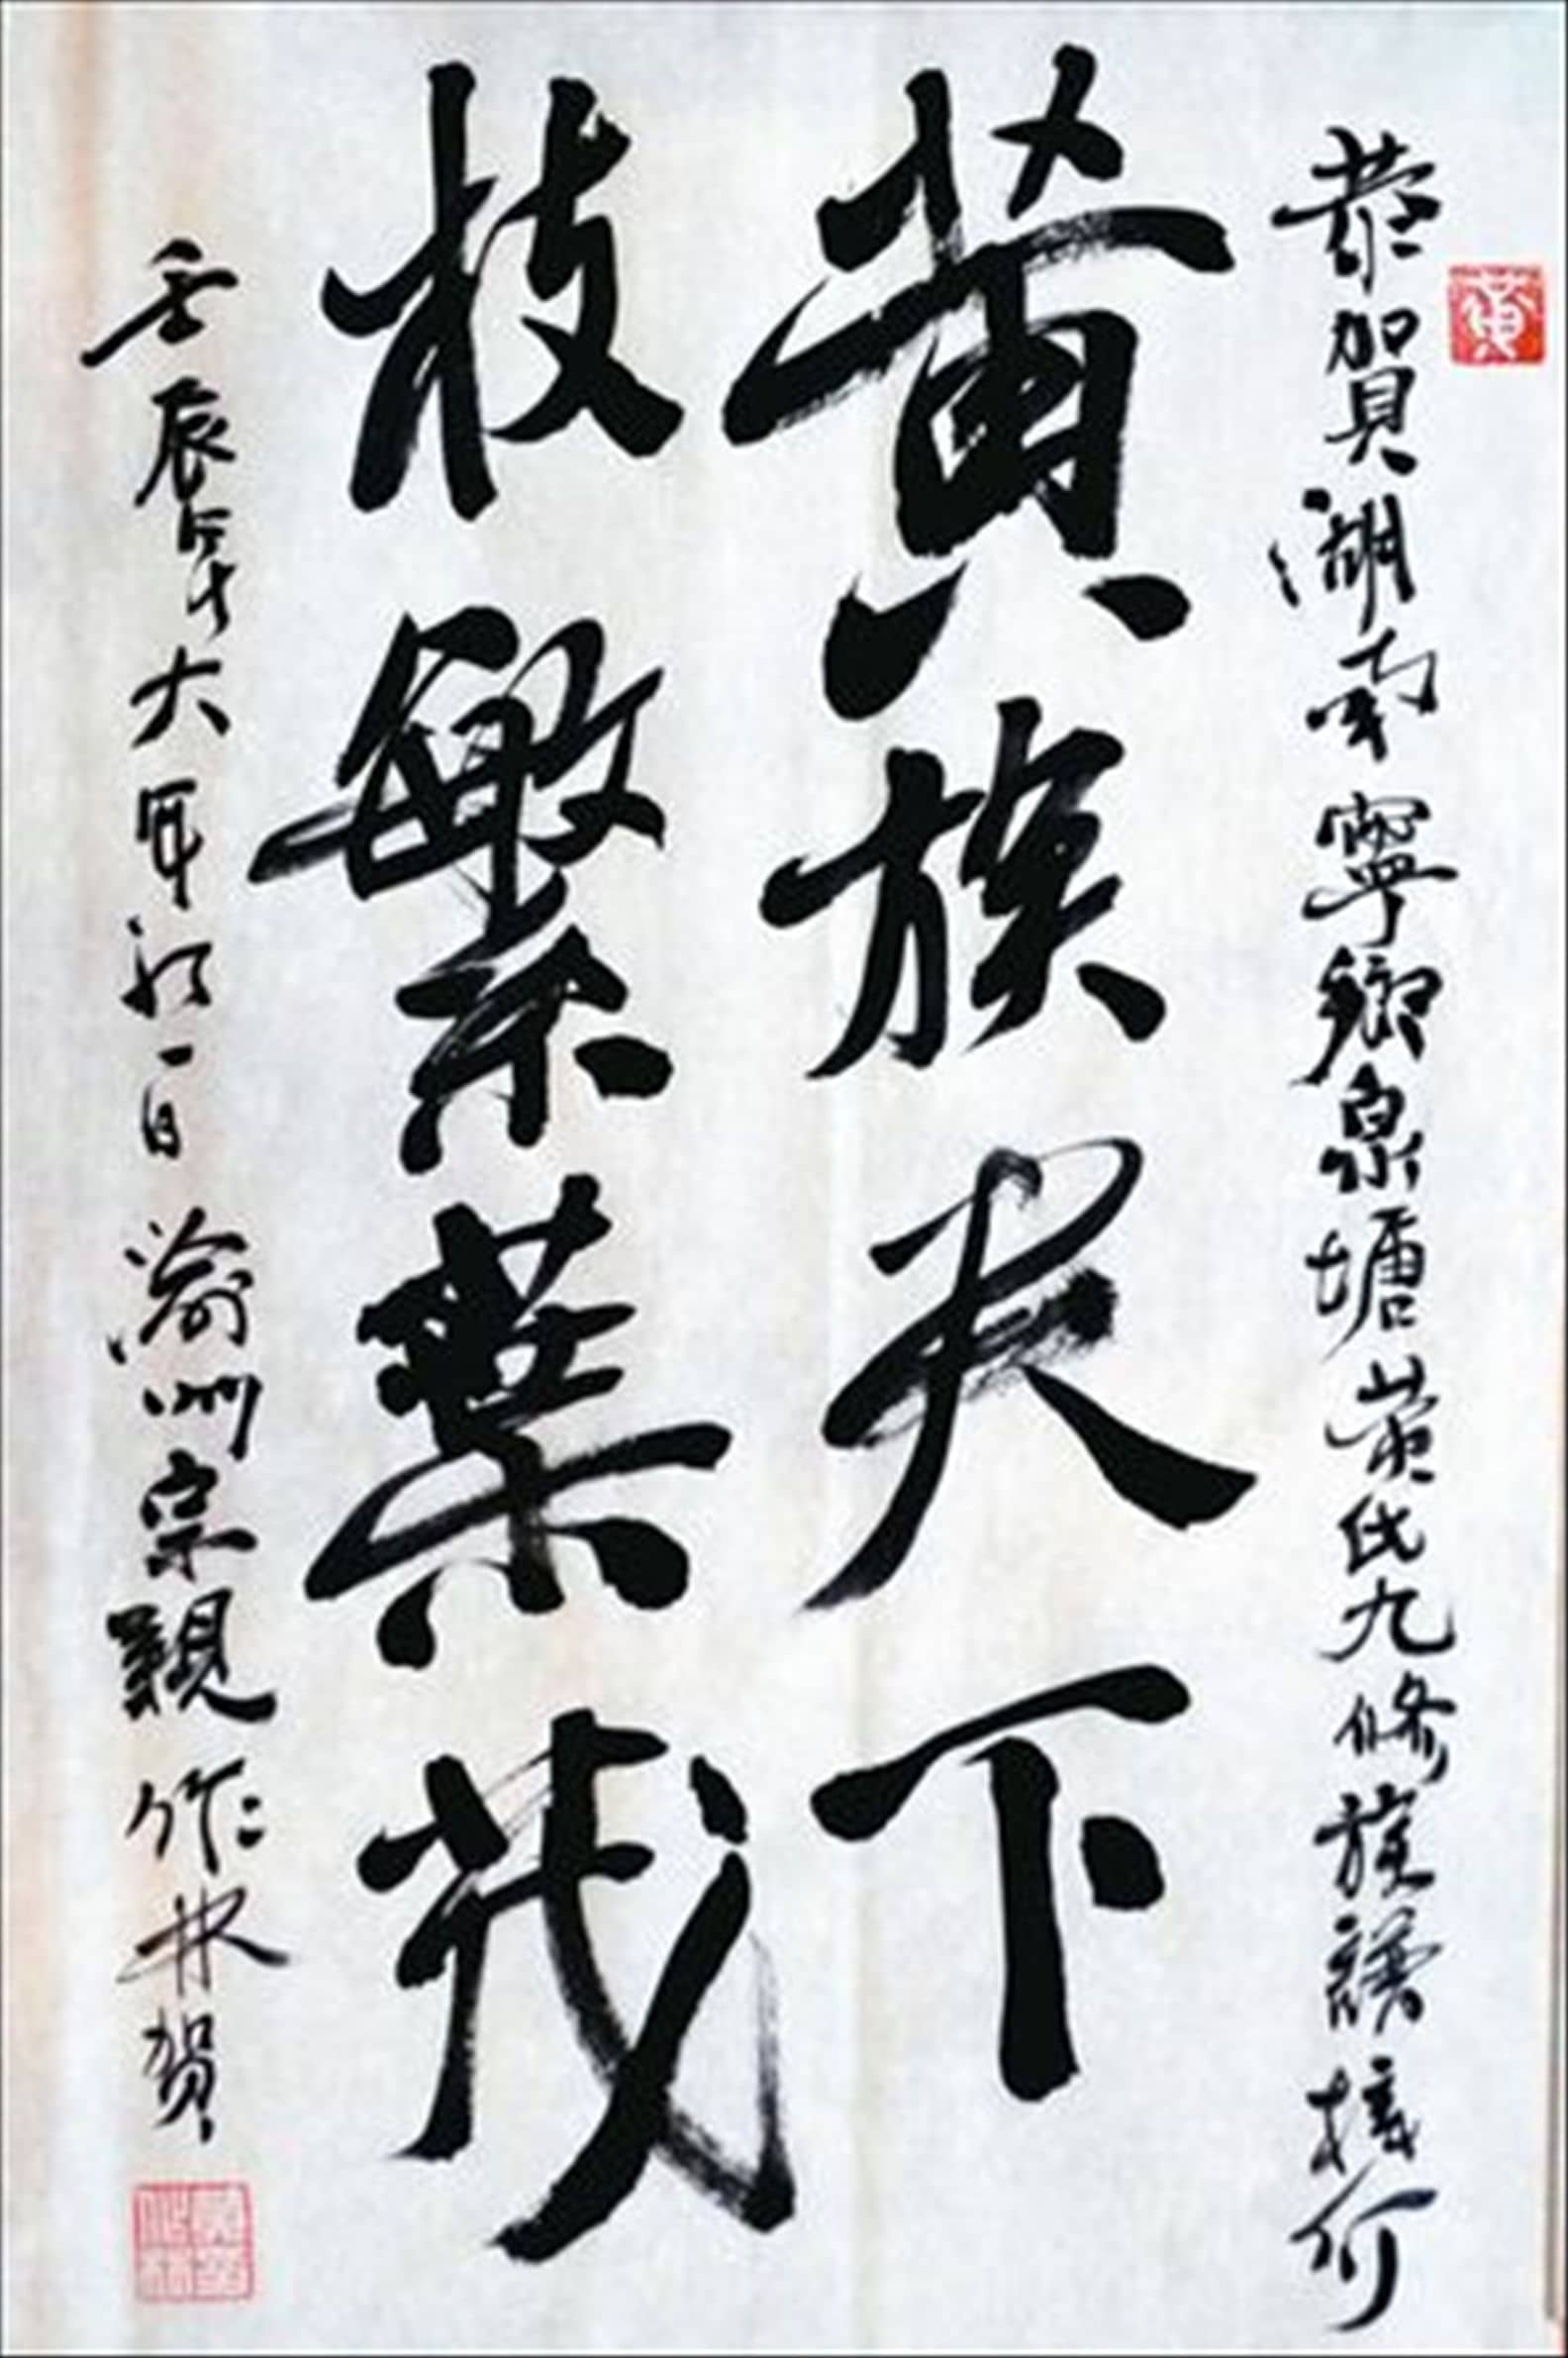 恭賀湖南寧鄉泉塘黃氏九修族譜
黄族天下
枝繁葉茂
壬辰年大年初一日渝州宗親作林賀